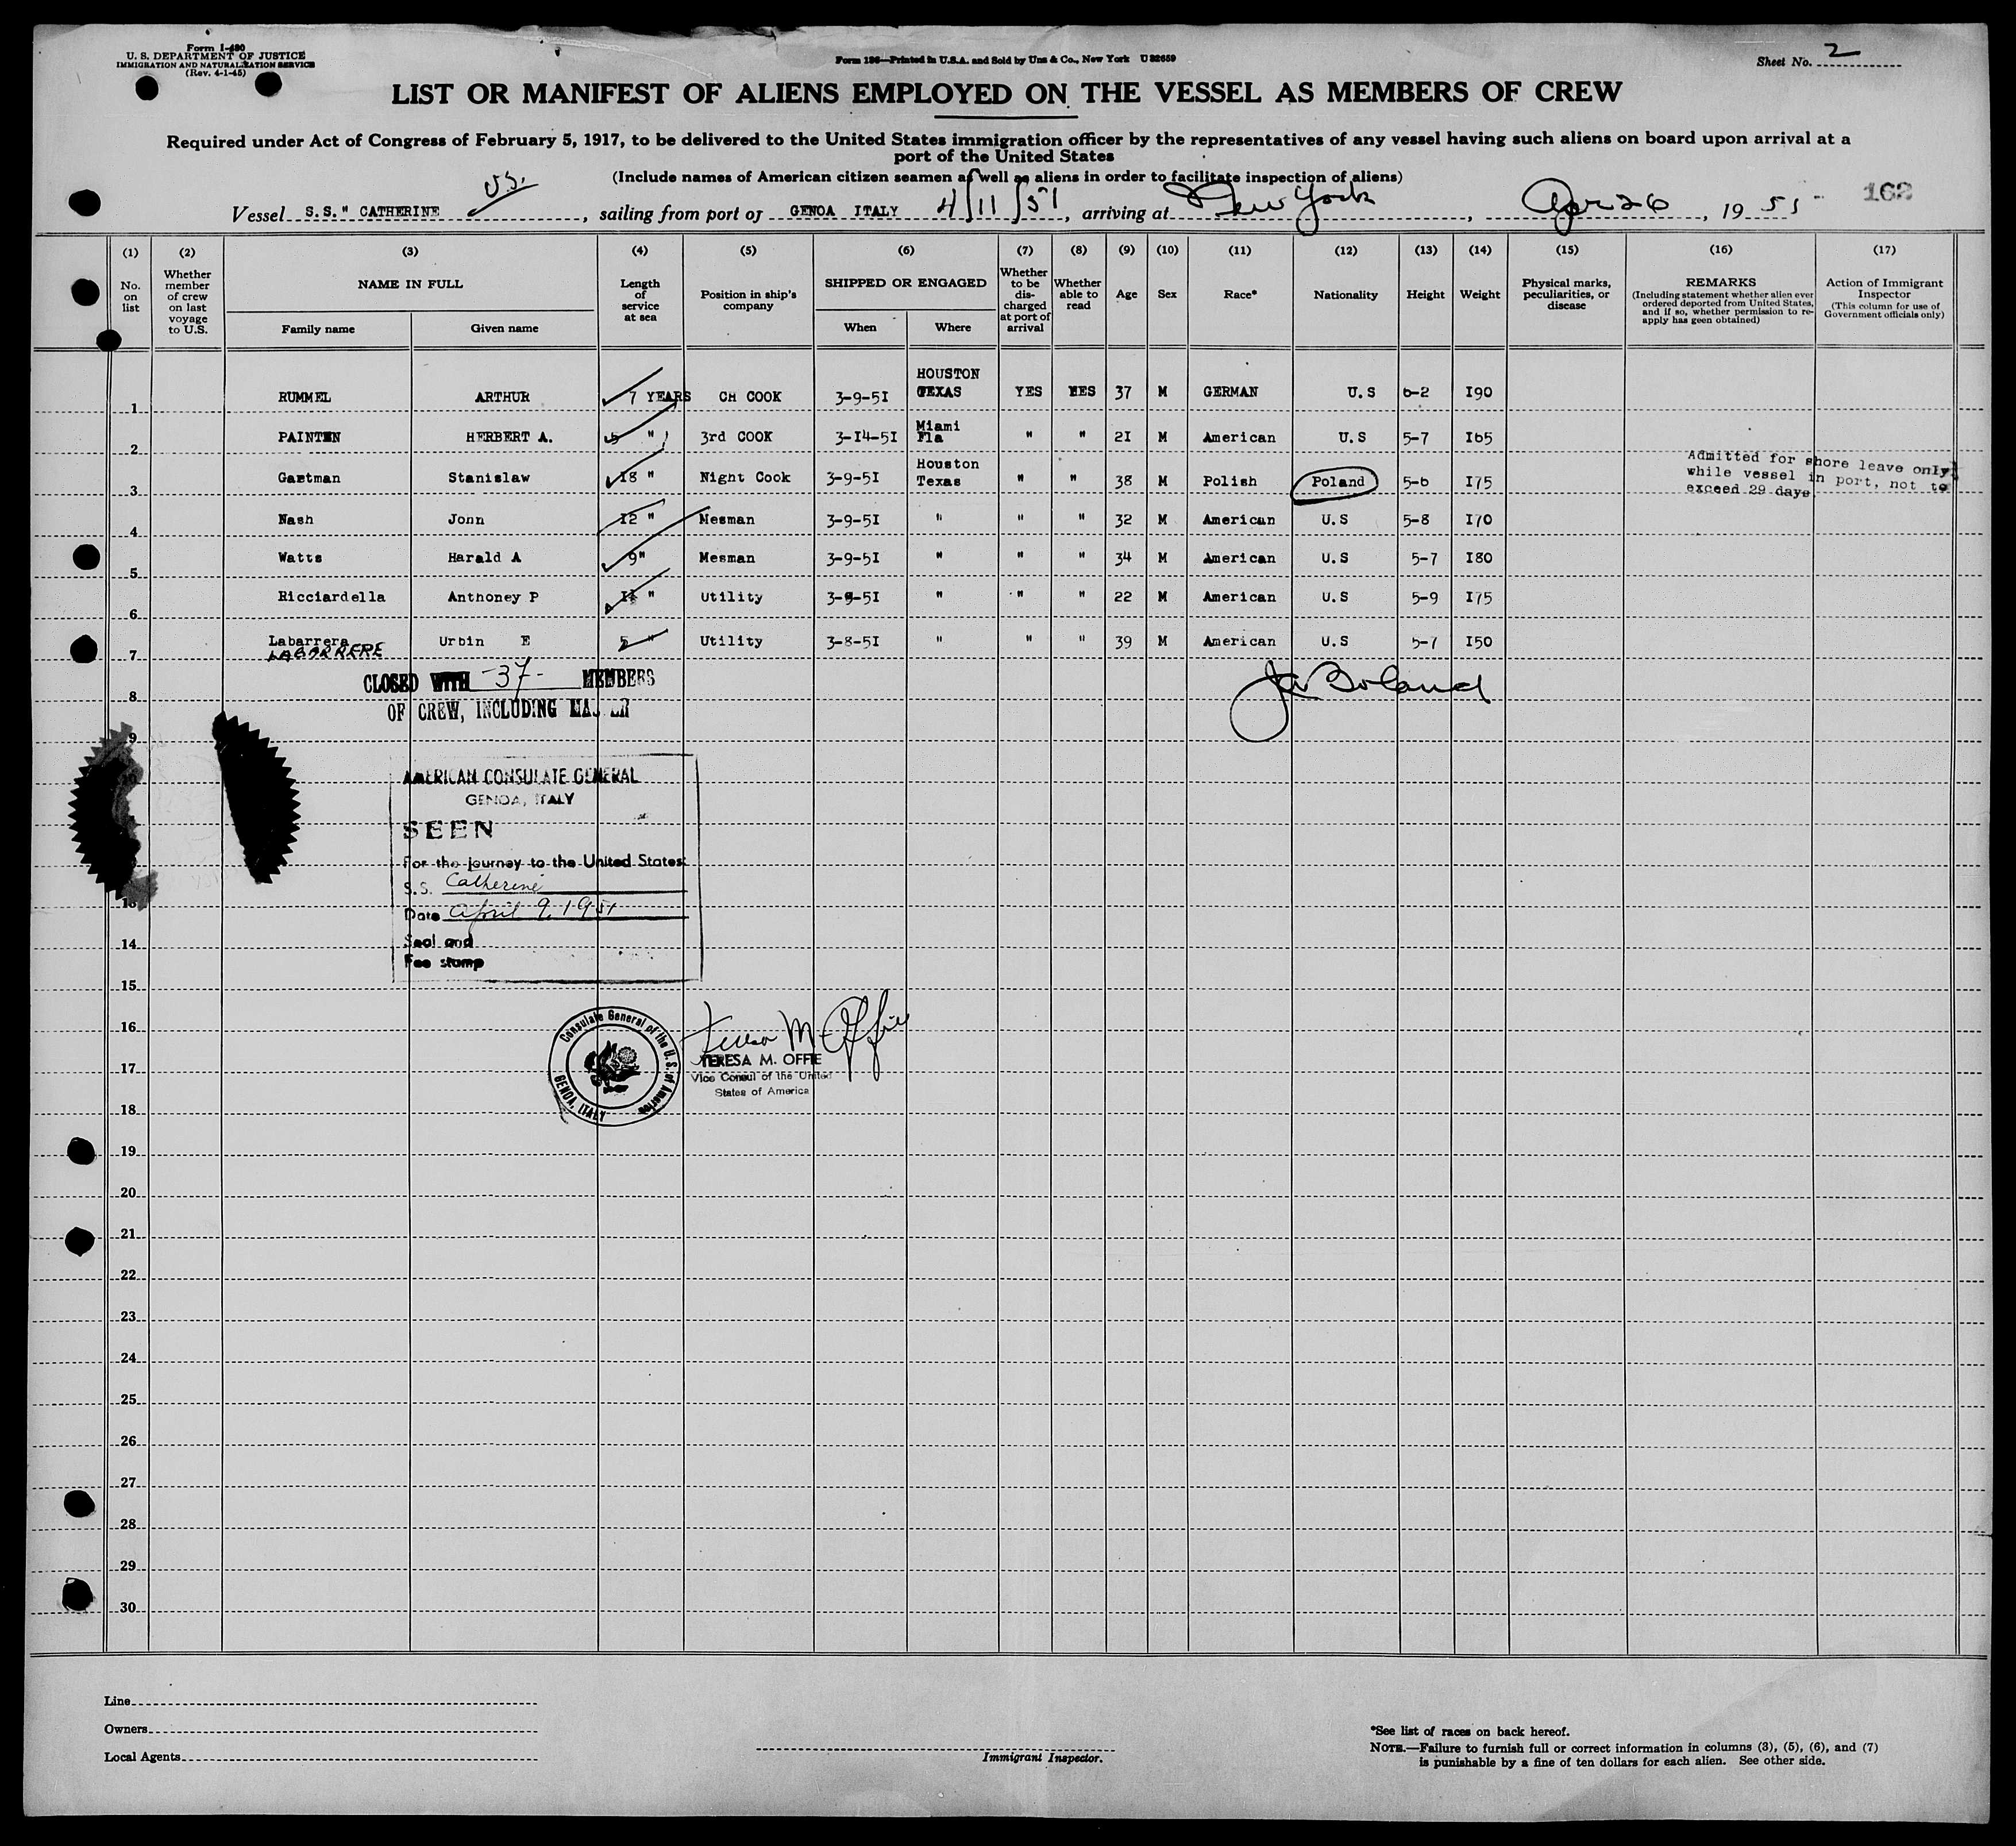 Form I-480
U. S. DEPARTMENT OF JUSTICE
IMMIGRATION AND NATURALIZATION SERVICE
(Rev. 4-1-45)
Form 186—Printed in U.S.A. and Sold by Unz & Co., New York U 32659
Sheet No. 2
LIST OR MANIFEST OF ALIENS EMPLOYED ON THE VESSEL AS MEMBERS OF CREW
Required under Act of Congress of February 5, 1917, to be delivered to the United States immigration officer by the representatives of any vessel having such aliens on board upon arrival at a
port of the United States
(Include names of American citizen seamen as well as aliens in order to facilitate inspection of aliens)
U.S.
Vessel S.S." CATHERINE, sailing from port of GENOA ITALY 4/11/51, arriving at New York, Apr 26, 1951 162
(1) (2) (3) (4) (5) (6) (7) (8) (9) (10) (11) (12) (13) (14) (15) (16) (17)
No. on list
Whether member of crew on last voyage to U.S.
NAME IN FULL
Family name Given name
Length of service at sea
Position in ship's company
SHIPPED OR ENGAGED
When Where
Whether to be discharged at port of arrival
Whether able to read
Age
Sex
Race*
Nationality
Height
Weight
Physical marks, peculiarities, or disease
REMARKS
(Including statement whether alien ever ordered deported from United States, and if so, whether permission to reapply has geen obtained)
Action of Immigrant Inspector
(This column for use of Government officials only)
1 RUMMEL ARTHUR 7 YEARS CH COOK 3-9-51 HOUSTON TEXAS YES YES 37 M GERMAN U.S 6-2 I90
2 PAINTEN HERBERT A. 5 " 3rd COOK 3-I4-5I Miami Fla " " 2I M American U.S 5-7 I65
3 Gartman Stanislaw I8 " Night Cook 3-9-5I Houston Texas " " 38 M Polish Poland 5-6 I75
Admitted for shore leave only
while vessel in port, not to
exceed 29 days
4 Nash John I2 " Mesman 3-9-5I " " " 32 M American U.S 5-8 I70
5 Watts Harald A 9" Mesman 3-9-5I " " " 34 M American U.S 5-7 I80
6 Ricciardella Anthoney P " Utility 3-9-5I " " " 22 M American U.S 5-9 I75
7 Labarrera Urbin E 5 " Utility 3-8-5I " " " 39 M American U.S 5-7 I50
LABARRERE
CLOSED WITH -37- MEMBERS
OF CREW, INCLUDING MASTER
J Boland
8
9
AMERICAN CONSULATE GENERAL
GENOA, ITALY
SEEN
For the journey to the United States:
S.S. Catherine
Date April 9, 1951
Seal and
Fee stamp
13
14
15
16
17
18
Consulate General of the U. S. of America
GENOA, ITALY
Teresa M. Offie
TERESA M. OFFIE
Vice Consul of the United
States of America
19
20
21
22
23
24
25
26
27
28
29
30
Line
Owners
Local Agents
Immigrant Inspector.
*See list of races on back hereof.
NOTE.—Failure to furnish full or correct information in columns (3), (5), (6), and (7)
is punishable by a fine of ten dollars for each alien. See other side.